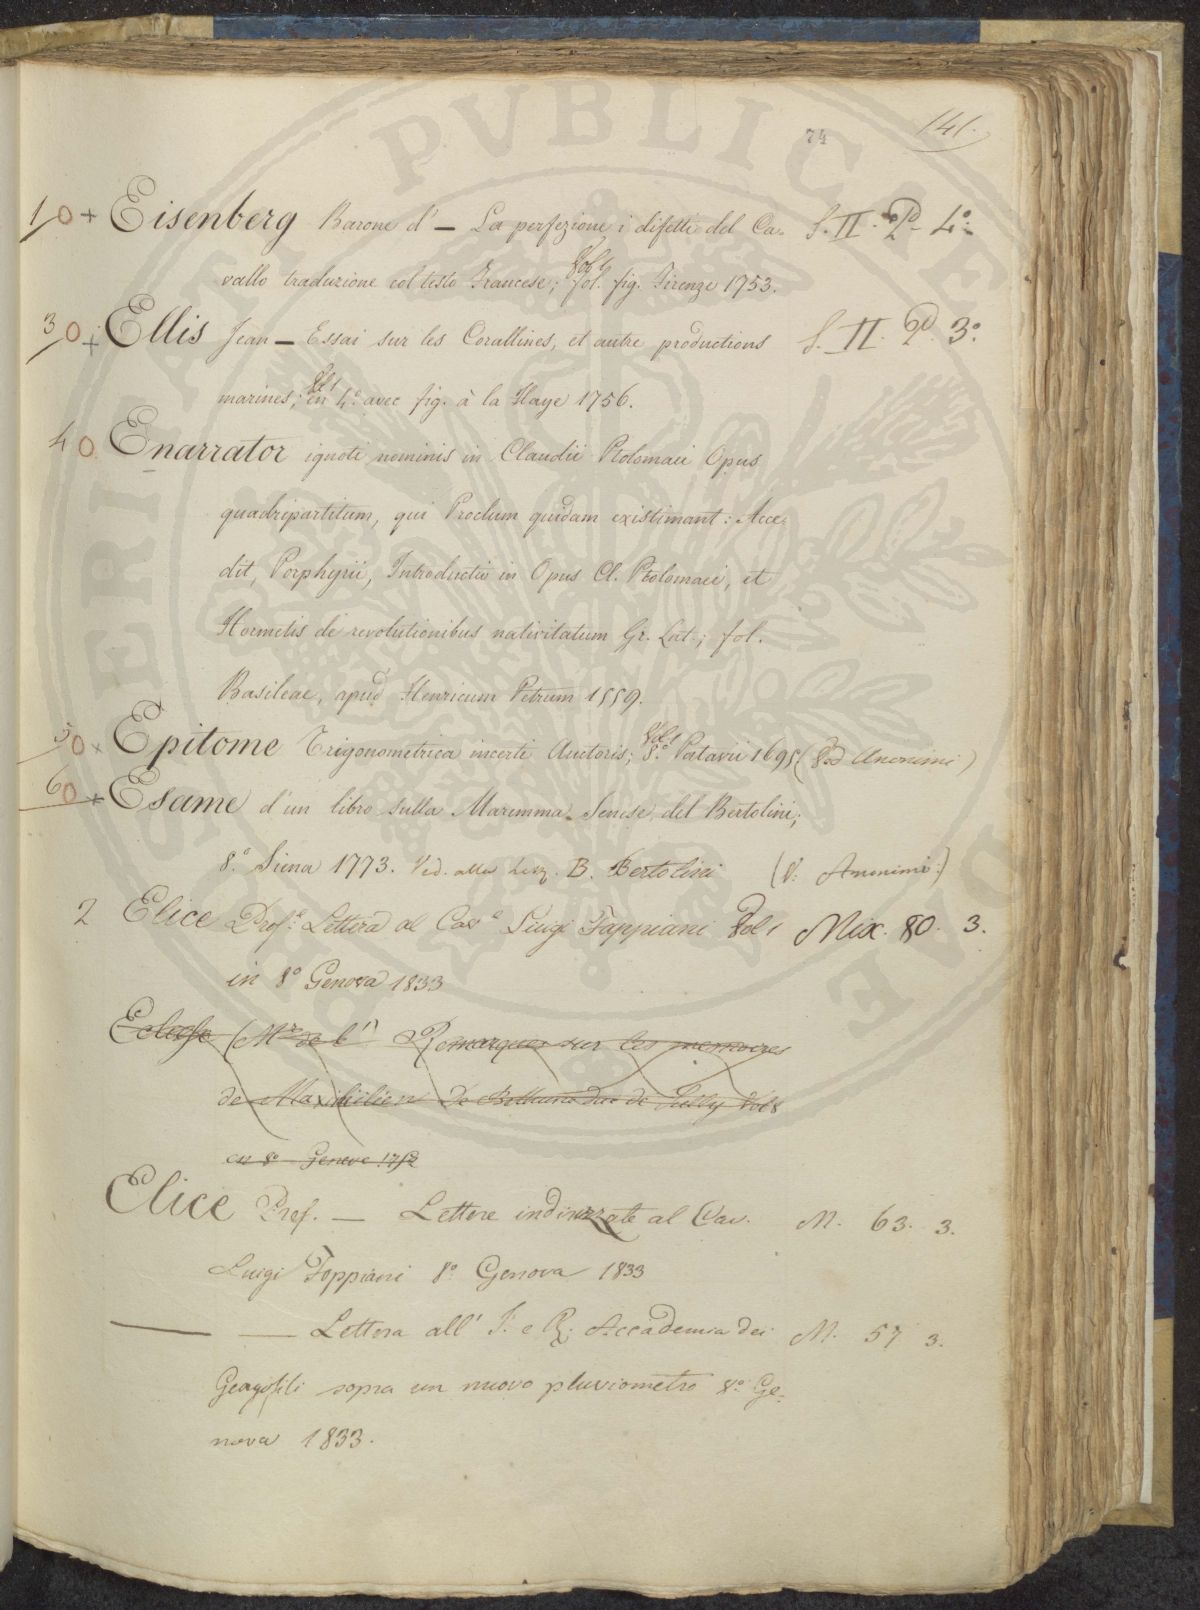 141.
74
1 0 + Eisenberg Barone d' — La perfezione i difetti del Ca- S. II. Pd. 4º.
vallo traduzione col testo Francese; Vol 1 fol. fig. Firenze 1753.
3 0 + Ellis Jean — Essai sur les Corallines, et autre productions S. II. Pd. 3º
marines; Vol 1 en 4º avec fig. à la Haye 1756.
4 0 Enarrator ignoti nominis in Claudii Ptolomaei Opus
quadripartitum, qui Proclum quidam existimant: Acce-
dit, Porphyrii, Introductio in Opus Cl. Ptolomaei, et
Hermetis de revolutionibus nativitatum Gr. Lat.; fol.
Basileae, apud Henricum Petrum 1559.
50 x Epitome Trigonometrica incerti Auctoris; Vol 1 8º Patavii 1695 (Ved Anonimi)
60 x Esame d'un libro sulla Maremma Senese del Bertolini;
8º Siena 1773. Ved. alla Lett. B. Bertolini (V. Anonimi.)
2 Elice Profe. Lettera al Cave Luigi Toppiani Vol 1 Mix. 80. 3.
in 8º Genova 1833
Eclese (Mr. de l') Remarques sur les memoires
de Maximilien de Bethune duc de Sully Vol
en 8º Geneve 1752
Elice Prof. — Lettere indirizzate al Cav. M. 63. 3.
Luigi Toppiani 8º Genova 1833
— — Lettera all' I. e R. Accademia dei M. 57 3.
Georgofili sopra un nuovo pluviometro 8º Ge-
nova 1833.
PVBLICAE